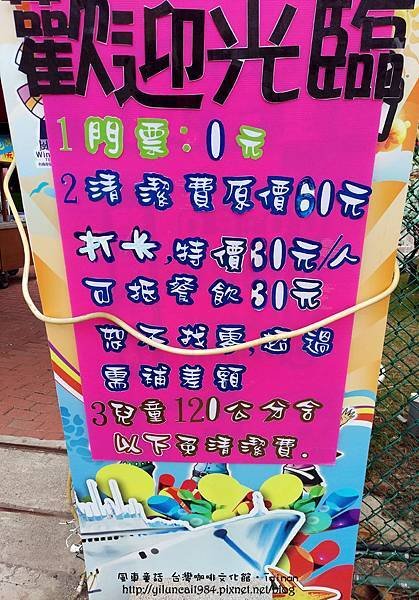 歡迎光臨
1 門票:0元
2 清潔費原價60元
打卡,特價30元/人
可抵餐飲30元
恕不找零,超過
需補差額
3 兒童120公分含
以下免清潔費.
Win
風車童話-台灣咖啡文化館。Tainan
http://yiluncail984.pixnet.net/blog